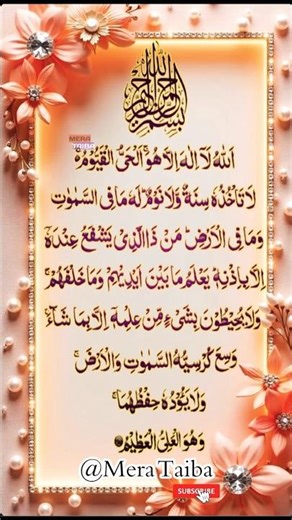 بسم الله الرحمن الرحيم
MERA
TAIBA
اَللّٰهُ لَاۤ اِلٰهَ اِلَّا هُوَۚ اَلْحَیُّ الْقَیُّوْمُ ۚ
لَا تَاْخُذُهٗ سِنَةٌ وَّلَا نَوْمٌؕ لَهٗ مَا فِی السَّمٰوٰتِ
وَمَا فِی الْاَرْضِؕ مَنْ ذَا الَّذِیْ یَشْفَعُ عِنْدَهٗۤ
اِلَّا بِاِذْنِهٖؕ یَعْلَمُ مَا بَیْنَ اَیْدِیْهِمْ وَمَا خَلْفَهُمْۚ
وَلَا یُحِیْطُوْنَ بِشَیْءٍ مِّنْ عِلْمِهٖۤ اِلَّا بِمَا شَآءَۚ
وَسِعَ كُرْسِیُّهُ السَّمٰوٰتِ وَالْاَرْضَۚ
وَلَا یَـُٔوْدُهٗ حِفْظُهُمَاۚ
وَهُوَ الْعَلِیُّ الْعَظِیْمُ
@Mera Taiba
SUBSCRIBE